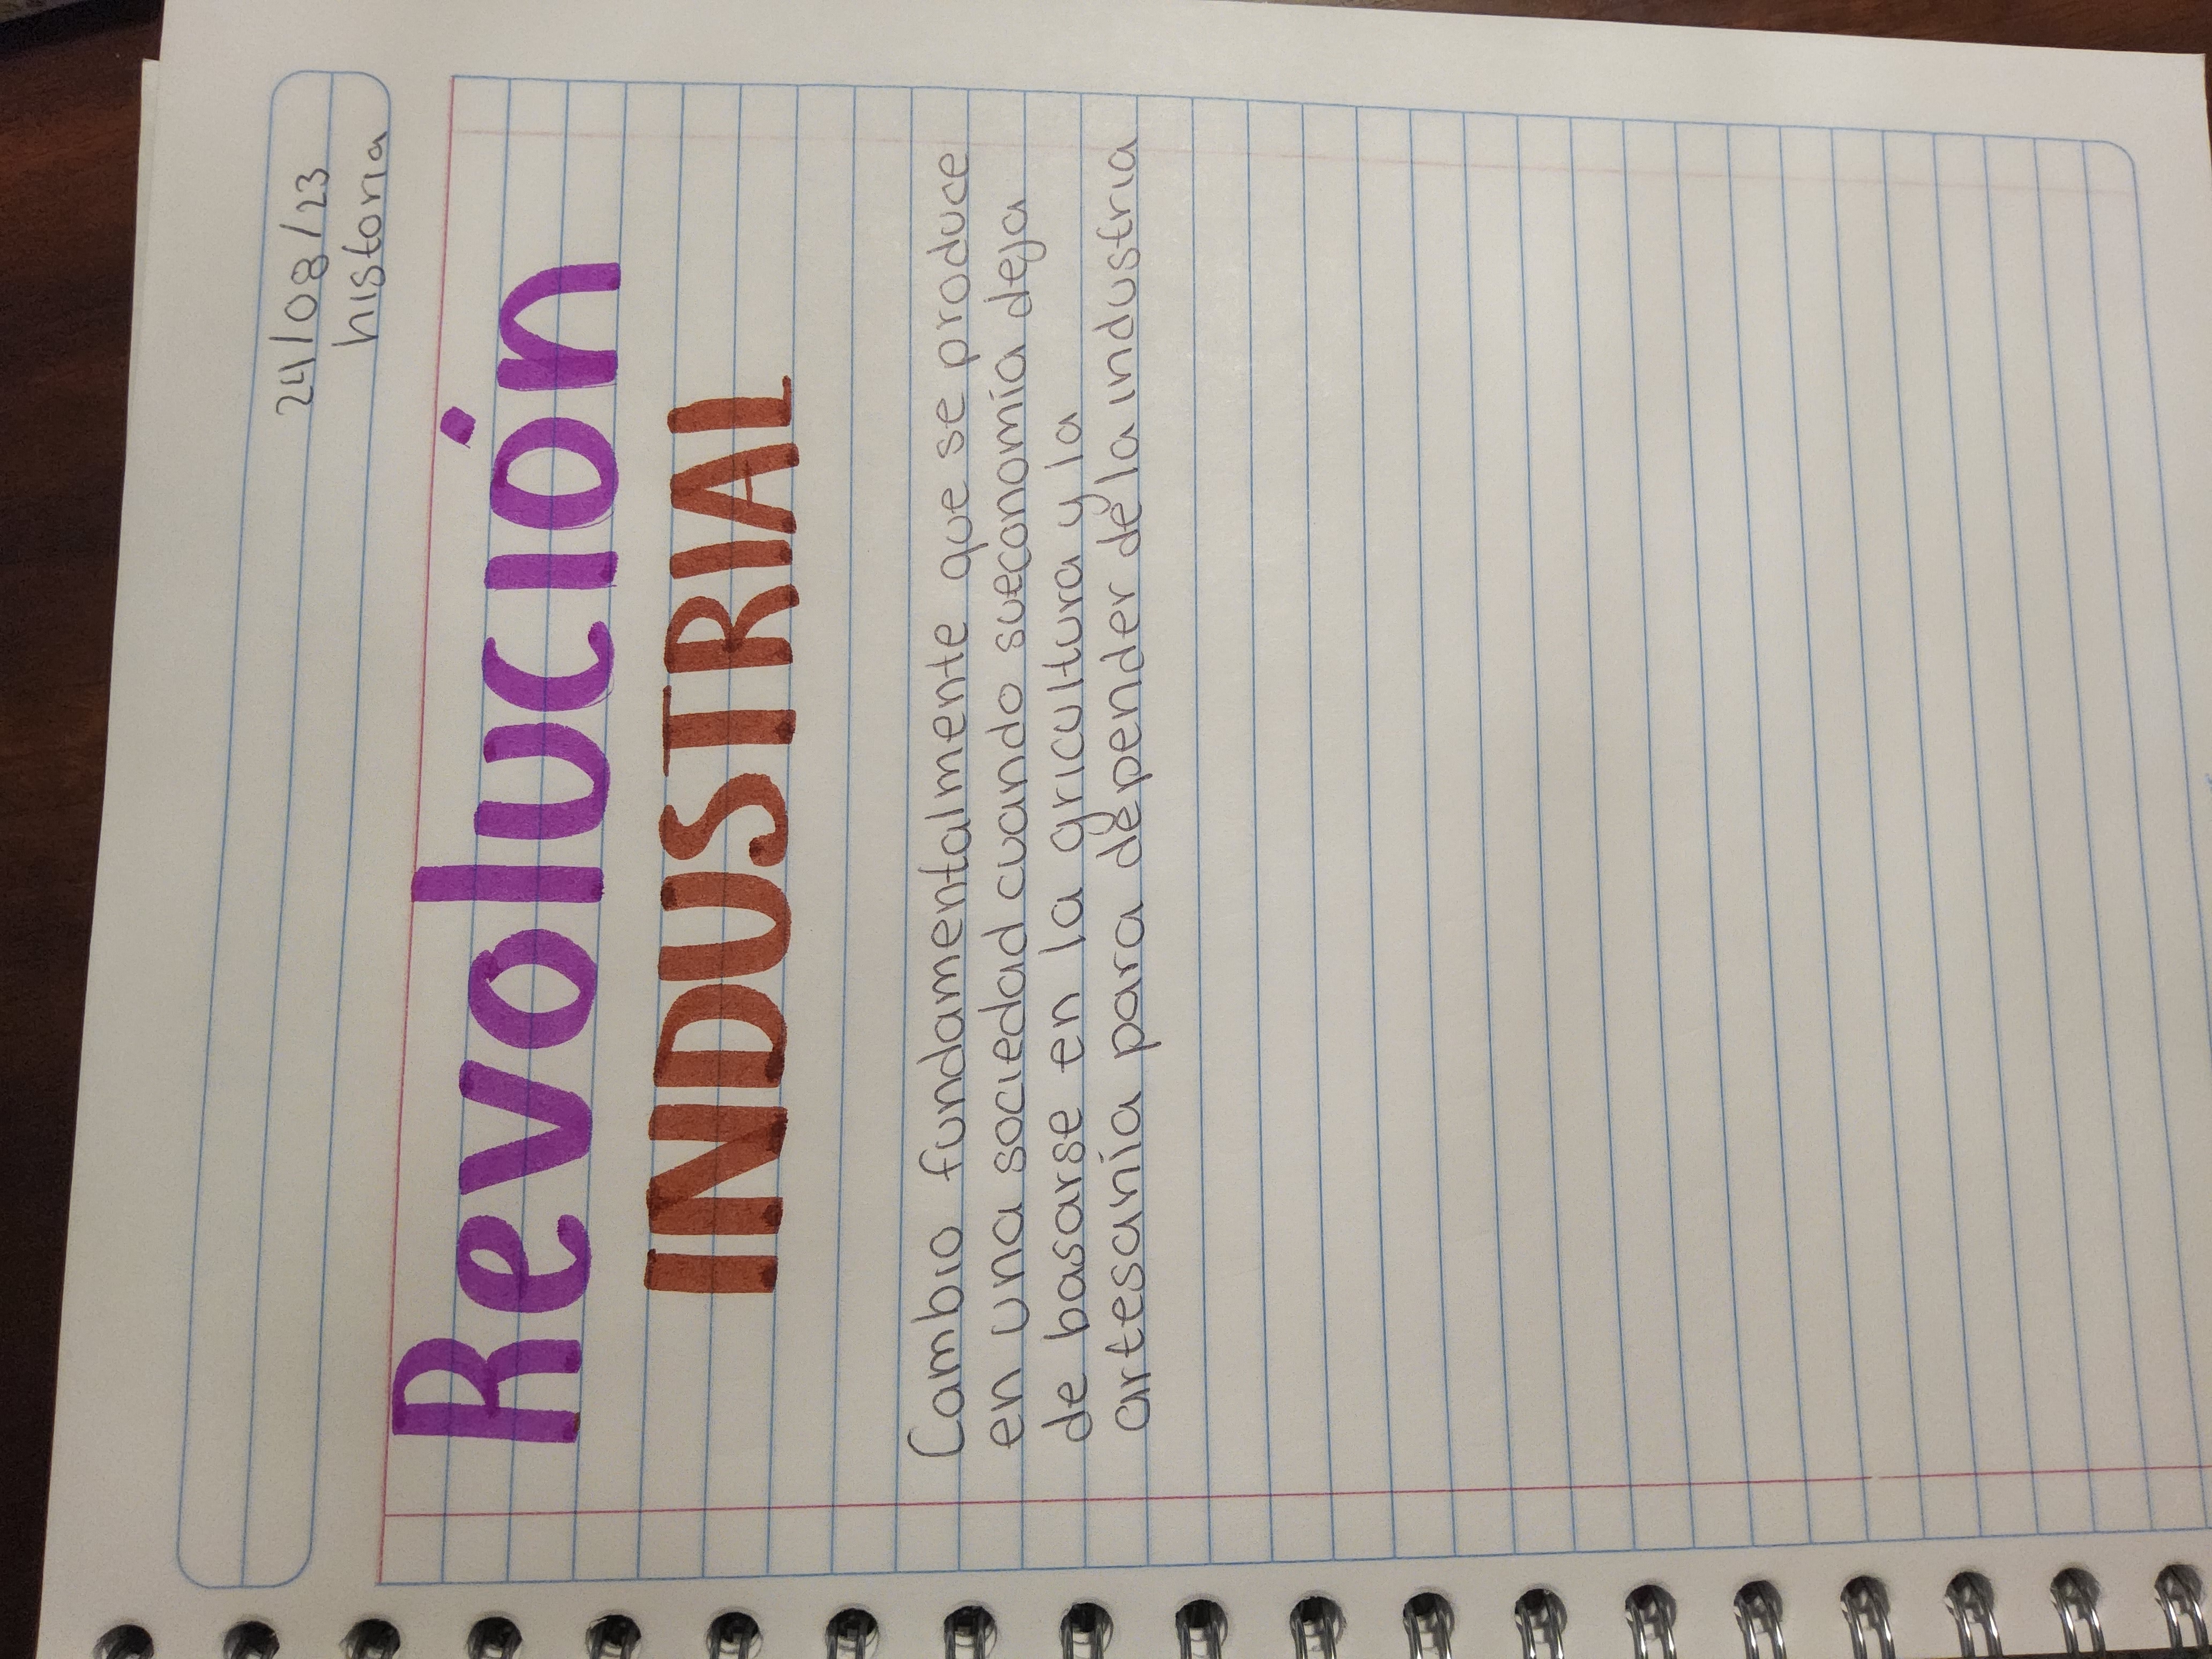 24/08/23
historia
Revolución
INDUSTRIAL
Cambio fundamentalmente que se produce
en una sociedad cuando su economía deja
de basarse en la agricultura y la
artesanía para depender de la industria